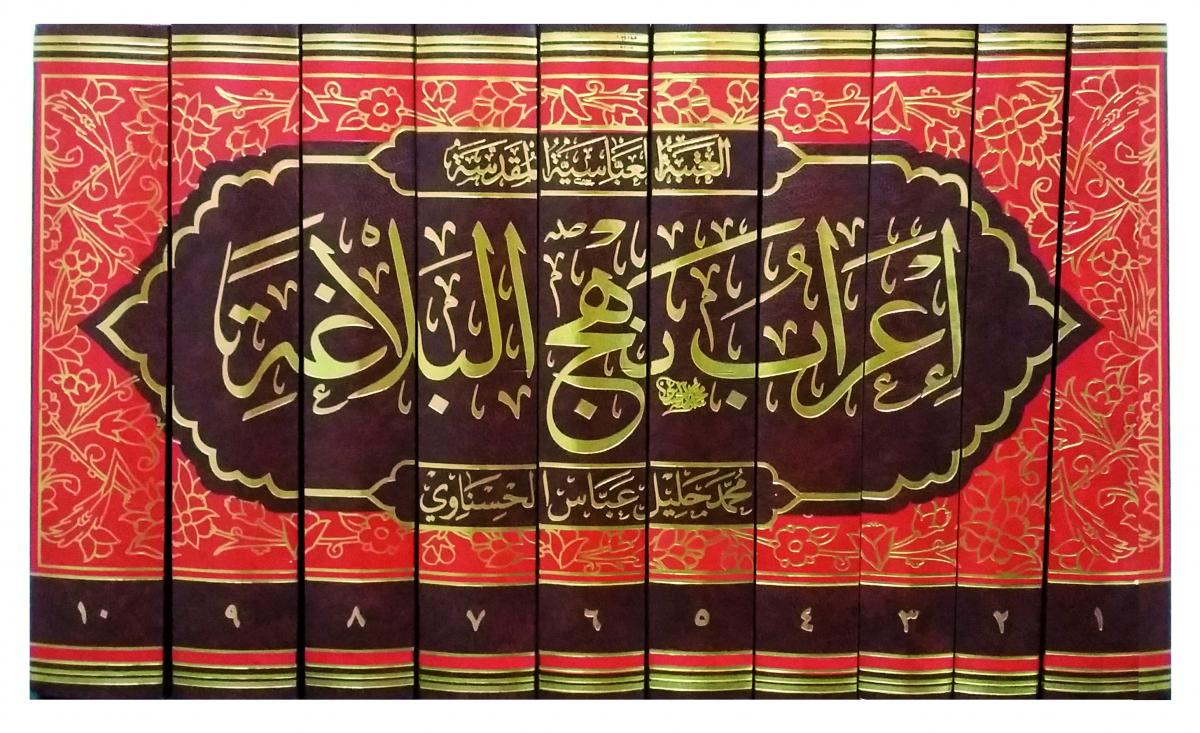 العتبة العباسية المقدسة
إِعْرَابُ نَهْجِ الْبَلَاغَةِ
محمد جليل عباس الحسناوي
١ ٢ ٣ ٤ ٥ ٦ ٧ ٨ ٩ ١٠